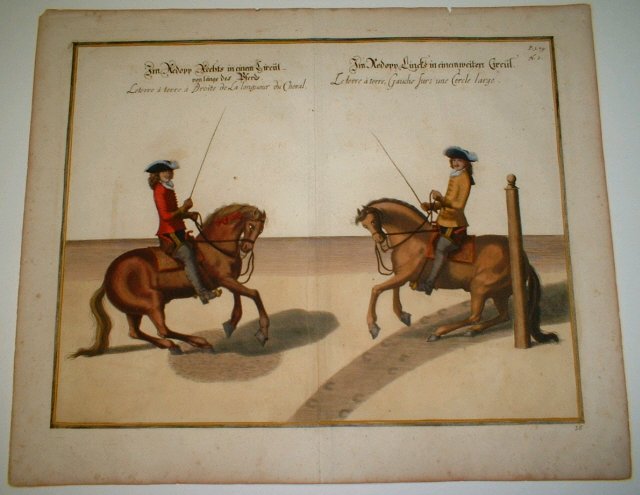 Im Redopp Rechts in einem Circül
von länge des Pferds
Leterre à terre à Droite de La longueur du Cheval.
Im Redopp Lincks in einem weiten Circül.
Le terre à terre, Gauche sur une Cercle large.
N. 2.
26